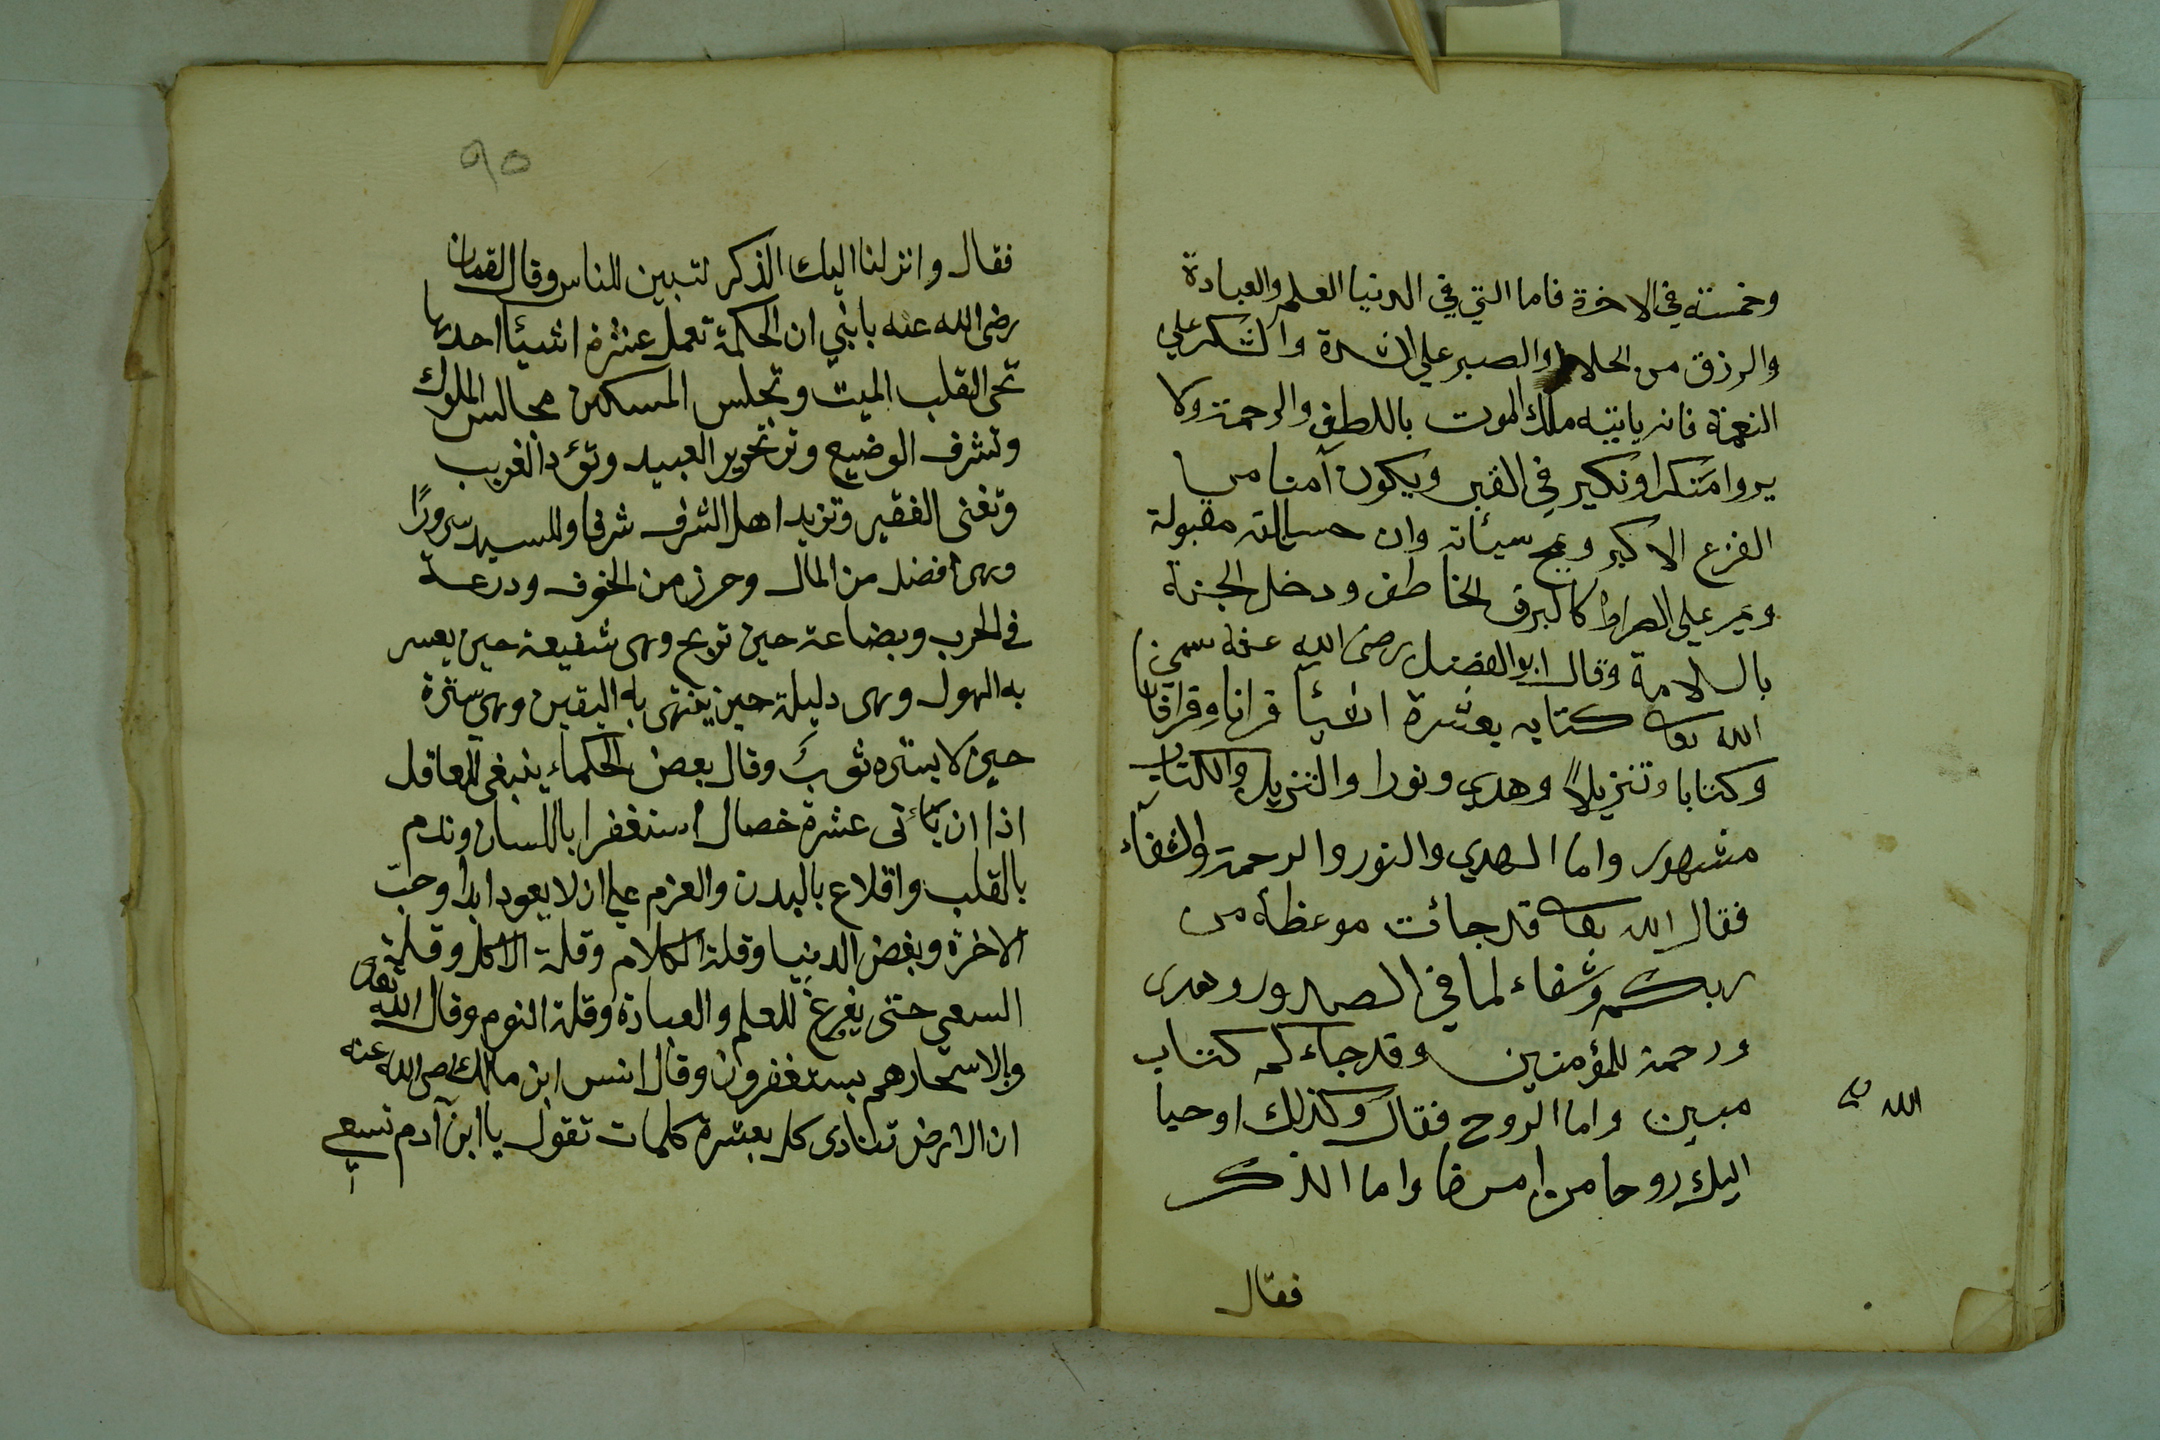 وخمسته في الاخرة فاما التي في الدنيا العلم والعبادة
والرزق من الحلال والصبر علي الشدة والشكر علي
النعمة فانه ياتيه ملك الموت باللطف والرحمة ولا
يروا منكرا ونكير في القبر ويكون آمنا من
الفزع الاكبر ويمح سيئاته وان حسناته مقبولة
ويمر علي الصراط كالبرق الخاطف ودخل الجنة
بالسلامة وقال ابو الفضل رضى الله عنه سمي
الله تعا كتابه بعشرة اشيأ قرانا وفرقانا
وكتابا وتنزيلاً وهدي ونورا والتنزيل والكتاب
مشهور واما الهدي والنور والرحمة والشفاء
فقال الله تعا قد جائت موعظة من
ربكم وشفاء لما في الصدور وهدى
ورحمة للمؤمنين وقد جاءكم كتاب
مبين واما الروح فقال وكذلك اوحيا
اليك روحا من امرنا واما الذكر
فقال
الله
٩٥
فقال وانزلنا اليك الذكر لتبين للناس وقال لقمان
رضى الله عنه يا بني ان الحكمة تعمل عشرة اشيأ احديها
تحى القلب الميت وتجلس المسكين مجالس الملوك
وتشرف الوضيع وتحرير العبيد وتؤد الغريب
وتغنى الفقير وتزيد اهل الشرف شرفا وللسيد سرورًا
وهى افضل من المال وحرز من الخوف ودرعة
في الحرب وبضاعة حين تربح وهى شفيعة حين يعسر
به الهول وهى دليلة حين ينتهى به اليقين وهي سترة
حين لا يستره ثوب وقال بعض الحكماء ينبغى للعاقل
اذا ان يأتى عشرة خصال استغفرا باللسان وندم
بالقلب واقلاع بالبدن والعزم على ان لا يعود ابدا وحب
الاخرة وبغض الدنيا وقلة الكلام وقلة الاكل وقلة
السعي حتى يفرغ للعلم والعبادة وقلة النوم وقال الله تعى
وبالاسحارهم يستغفرون وقال انس ابن مالك رضى الله عنه
ان الارض تنادى كل بعشرة كلمات تقول يا ابن آدم تسعي